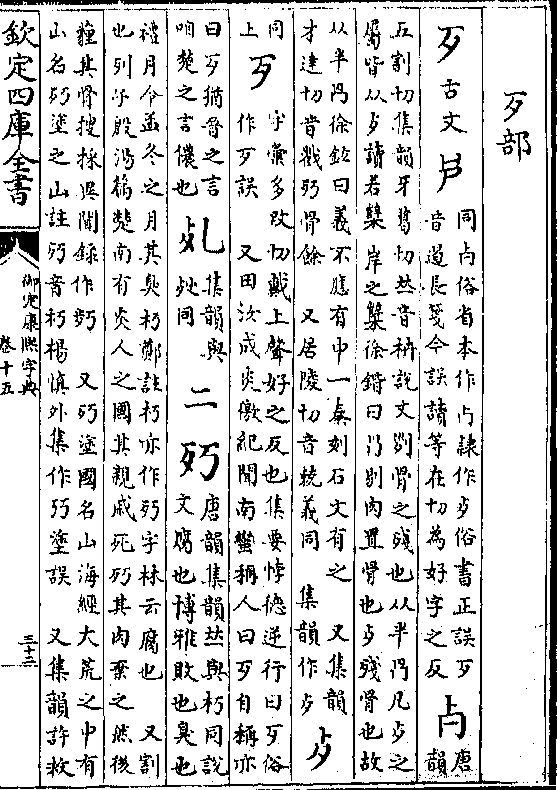 歹部
歹古文𡰮同歺俗省本作歺隷作歹俗書正誤歹
音遏長箋今誤讀等在切為好字之反歺唐
韻
五割切集韻牙葛切𠀤音枿說文列骨之殘也从半冎凡歺之
屬皆从歺讀若櫱岸之櫱徐鍇曰冎剔肉置骨也歺殘骨也故
从半冎徐鉉曰義不應有中一秦刻石文有之 又集韻
才達切音巀歹骨餘 又居陵切音兢義同 集韻作歺歺
同
上歹字彙多改切戴上聲好之反也集要悖德逆行曰歹俗
作歹誤 又田汝成炎徼紀聞南蠻稱人曰歹自稱亦
曰歹猶晉之言
咱楚之言儂也集韻與
同二㱙唐韻集韻𠀤與朽同說
文腐也博雅敗也臭也
禮月令孟冬之月其臭朽鄭註朽亦作㱙字林云腐也 又割
也列子殷湯篇楚南有炎人之國其親戚死㱙其肉棄之然後
薶其骨搜採異聞錄作㱙 又㱙塗國名山海經大荒之中有
山名㱙塗之山註㱙音朽楊慎外集作㱙塗誤 又集韻許救
欽定四庫全書
御定康熙字典
卷十五
三十三